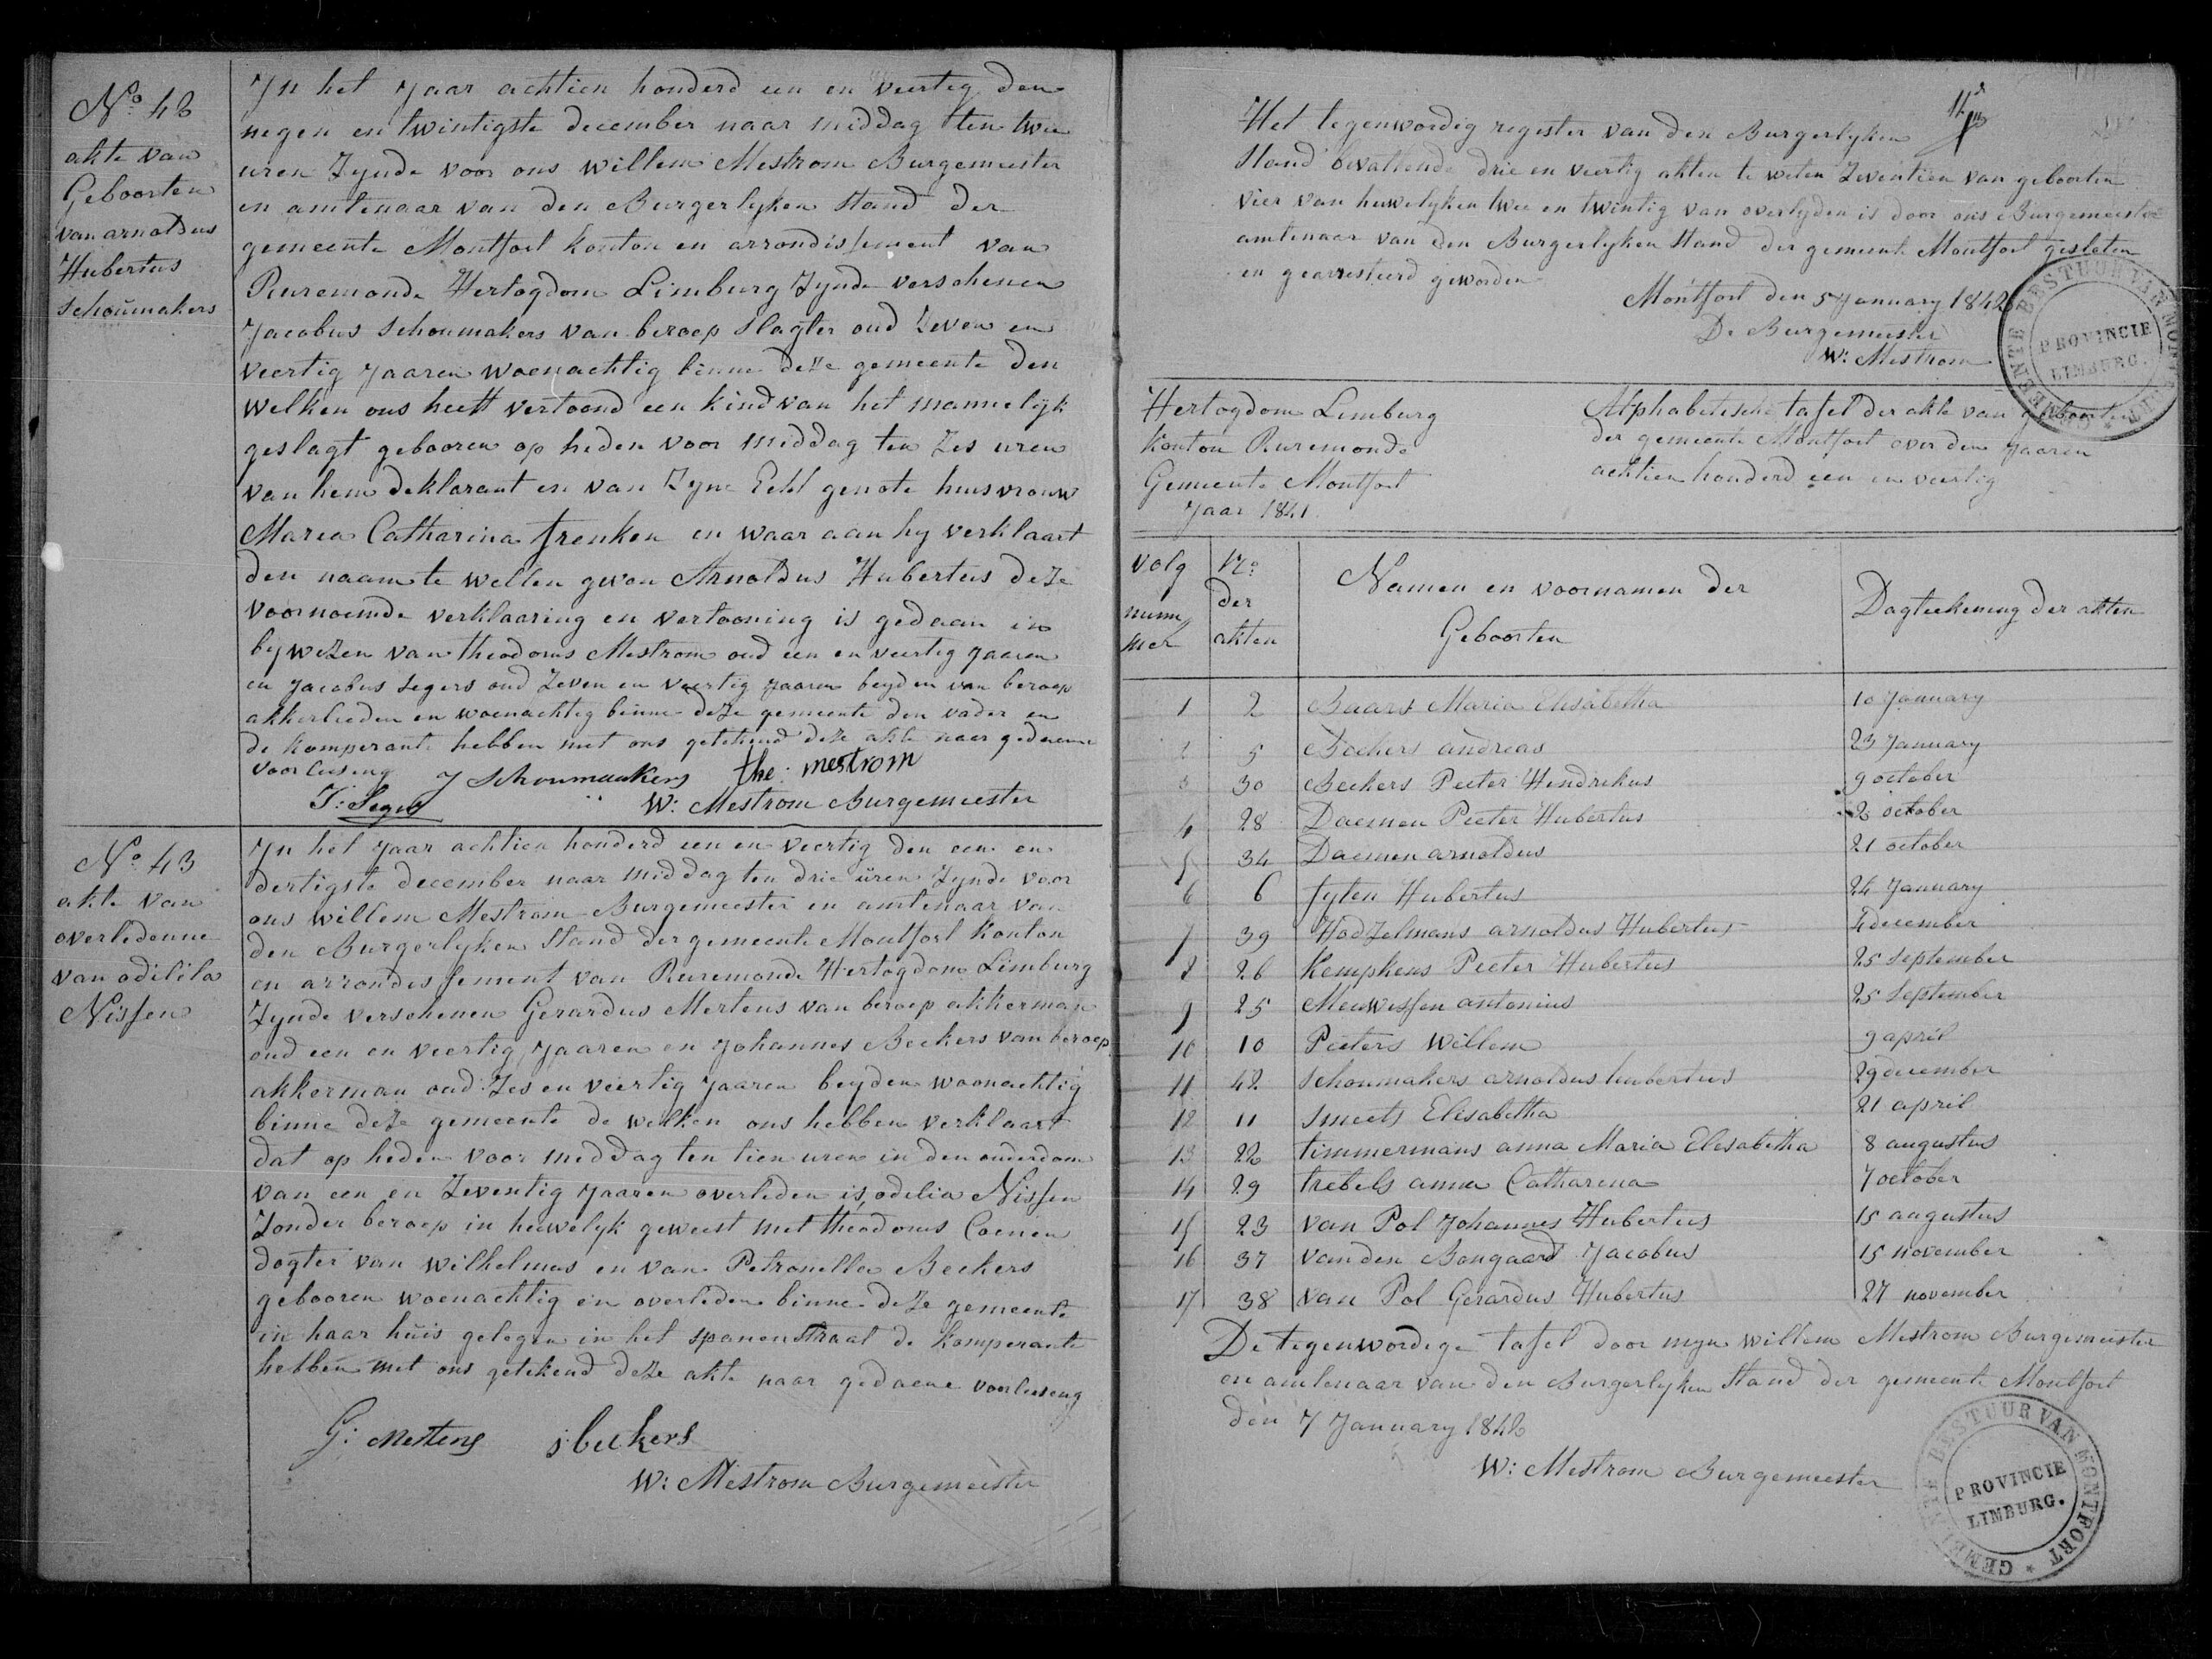 No 42
akte van
Geboorten
van arnoldus
Hubertus
schoumakers
In het Jaar achtien honderd een en veertig den
negen en twintigste december naar middag ten twee
uren Zynde voor ons willem Mestrom Burgemeester
en amtenaar van den Burgerlyken Stand der
gemeente Montfort konton en arrondissement van
Ruremonde Hertogdom Limburg Zynde verschenen
Jacobus Schoumakers van beroep slagter oud Zeven en
veertig Jaaren woenachtig binne deze gemeente den
welken ons heeft vertoond een kind van het mannelijk
geslagt gebooren op heden voor middag ten Zes uren
van hem deklarant en van Zyne Echt genote huisvrouw
Maria Catharina frenken en waar aan hy verklaart
den naam te wellen geven Arnoldus Hubertus deze
voornoemde verklaaring en vertooning is gedaan in
bywezen van theodorus Mestrom oud een en veertig Jaaren
en Jacobus Segers oud Zeven en veertig Jaaren beyden van beroep
akkerlieden en woenachtig binne deze gemeente den vader en
de komperante hebben met ons getekend deze akte naer gedaene
voorleesing J Schoumaakers the: mestrom
J: Segers W: Mestrom Burgemeester
No 43
akte van
overledenne
van odilila
Nissen
In het Jaar achtien honderd een en veertig den een en
dertigste december naar middag ten drie üren Zynde voor
ons willem Mestrom Burgemeester en amtenaar van
den Burgerlyken Stand der gemeente Montfort konton
en arrondissement van Ruremonde Hertogdom Limburg
Zynde verschenen Gerardus Mertens van beroep akkerman
oud een en veertig Jaaren en Johannes Beckers van beroep
akkerman oud Zes en veertig Jaaren beyden woonachtig
binne deze gemeente de welken ons hebben verklaart
dat op heden voor middag ten tien uren in den ouderdom
van een en Zeventig Jaaren overleden is odilia Nissen
Zonder beroep in heuwelyk geweest met theodorus Coenen
dogter van wilhelmus en van Petronella Beckers
gebooren woenachtig en overleden binne deze gemeente
in haar huis gelegen in het spanenstraat de komperante
hebben met ons getekend deze akte naar gedaene voorleeseng
G: Mertens j: beckers
W: Mestrom Burgemeester
Het tegenwordig register van den Burgerlyken
Stand bevattende drie en veertig akten te weten Zeventien van geboorten
vier van heuwelyken twee en twintig van overlyden is door ons Burgemeester
amtenaar van den Burgerlyken Stand der gemeente Montfort gesloten
en gearresteerd geworden
Montfort den 5 January 1842
De Burgemeester
W: Mestrom
GEMEENTE BESTUUR VAN MONTFORT
PROVINCIE
LIMBURG.
Hertogdom Limburg
Konton Ruremonde
Gemeente Montfort
Jaar 1841
Alphabetische tafel der akte van geboorten
der gemeente Montfort over den Jaaren
achtien honderd een en veertig
volg
numm
mer
No
der
akten
Namen en voornamen der
Geboorten
Dagteekening der akten
1 2 Baars Maria Elisabetha 10 January
2 5 Beckers andreas 23 January
3 30 Beckers Peeter Hendrikus 9 october
4 28 Daemen Peeter Hubertus 2 october
5 34 Daemen arnoldus 21 october
6 6 fyten Hubertus 24 January
7 39 HodZelmans arnoldus Hubertus 4 december
8 26 Kempkens Peeter Hubertus 25 September
9 25 Meuwissen antonius 25 September
10 10 Peeters Willem 9 april
11 42 schoumakers arnoldus hubertus 29 december
12 11 smeets Elisabetha 21 april
13 22 timmermans anna Maria Elesabetha 8 augustus
14 29 trebels anna Catharina 7 october
15 23 van Pol Johannes Hubertus 15 augustus
16 37 vanden Bongaard Jacobus 15 november
17 38 van Pol Gerardus Hubertus 27 november
De tegenwordege tafel door myn willem Mestrom Burgemeester
en amtenaar van den Burgerlyken Stand der gemeente Montfort
den 7 January 1842
W: Mestrom Burgemeester
GEMEENTE BESTUUR VAN MONTFORT
PROVINCIE
LIMBURG.